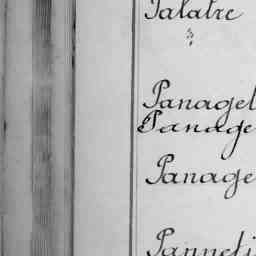 Palatre
3
Panagel
Panage
Panage
Panneti